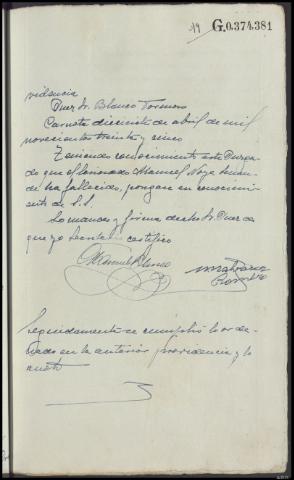 19 G.0.374.381
videncia
Juez Sr. Blanco
Carnota diecisiete de abril de mil
novecientos treinta y cinco
Teniendo conocimiento este Juzga-
do que el lesionado Manuel
de ha fallecido, pongase en conocimi-
ento de S.S.
Lo mando y firma dicho Sr. Juez de
que yo Secretario certifico
Manuel Blanco
Seguidamente se cumplió lo or de-
nado en la anterior providencia y lo